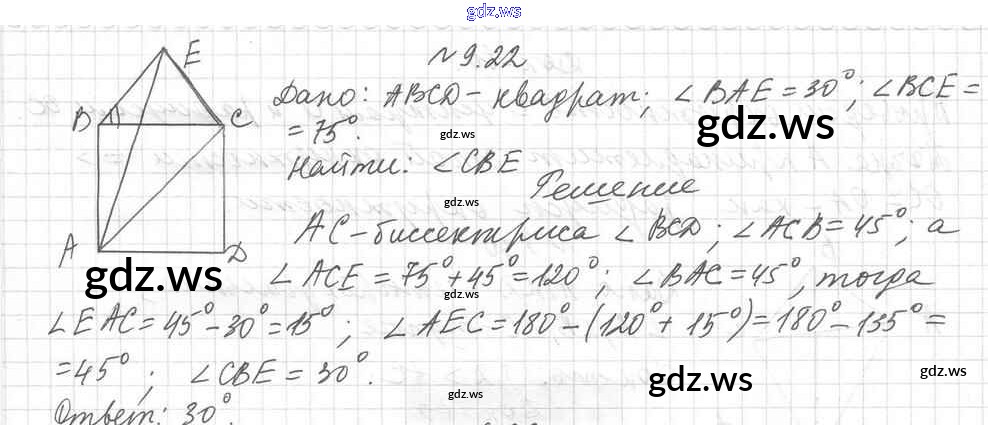 gdz.ws
№ 9.22
E
Дано: ABCD - квадрат; ∠BAE = 30°; ∠BCE =
B C
= 75°.
gdz.ws
gdz.ws
Найти: ∠CBE
Решение
gdz.ws
AC - биссектриса ∠BCD; ∠ACB = 45°; а
A D
gdz.ws
∠ACE = 75° + 45° = 120°; ∠BAC = 45°, тогда
gdz.ws
∠EAC = 45° - 30° = 15°; ∠AEC = 180° - (120° + 15°) = 180° - 135° =
= 45°; ∠CBE = 30°.
gdz.ws
gdz.ws
gdz.ws
Ответ: 30°.